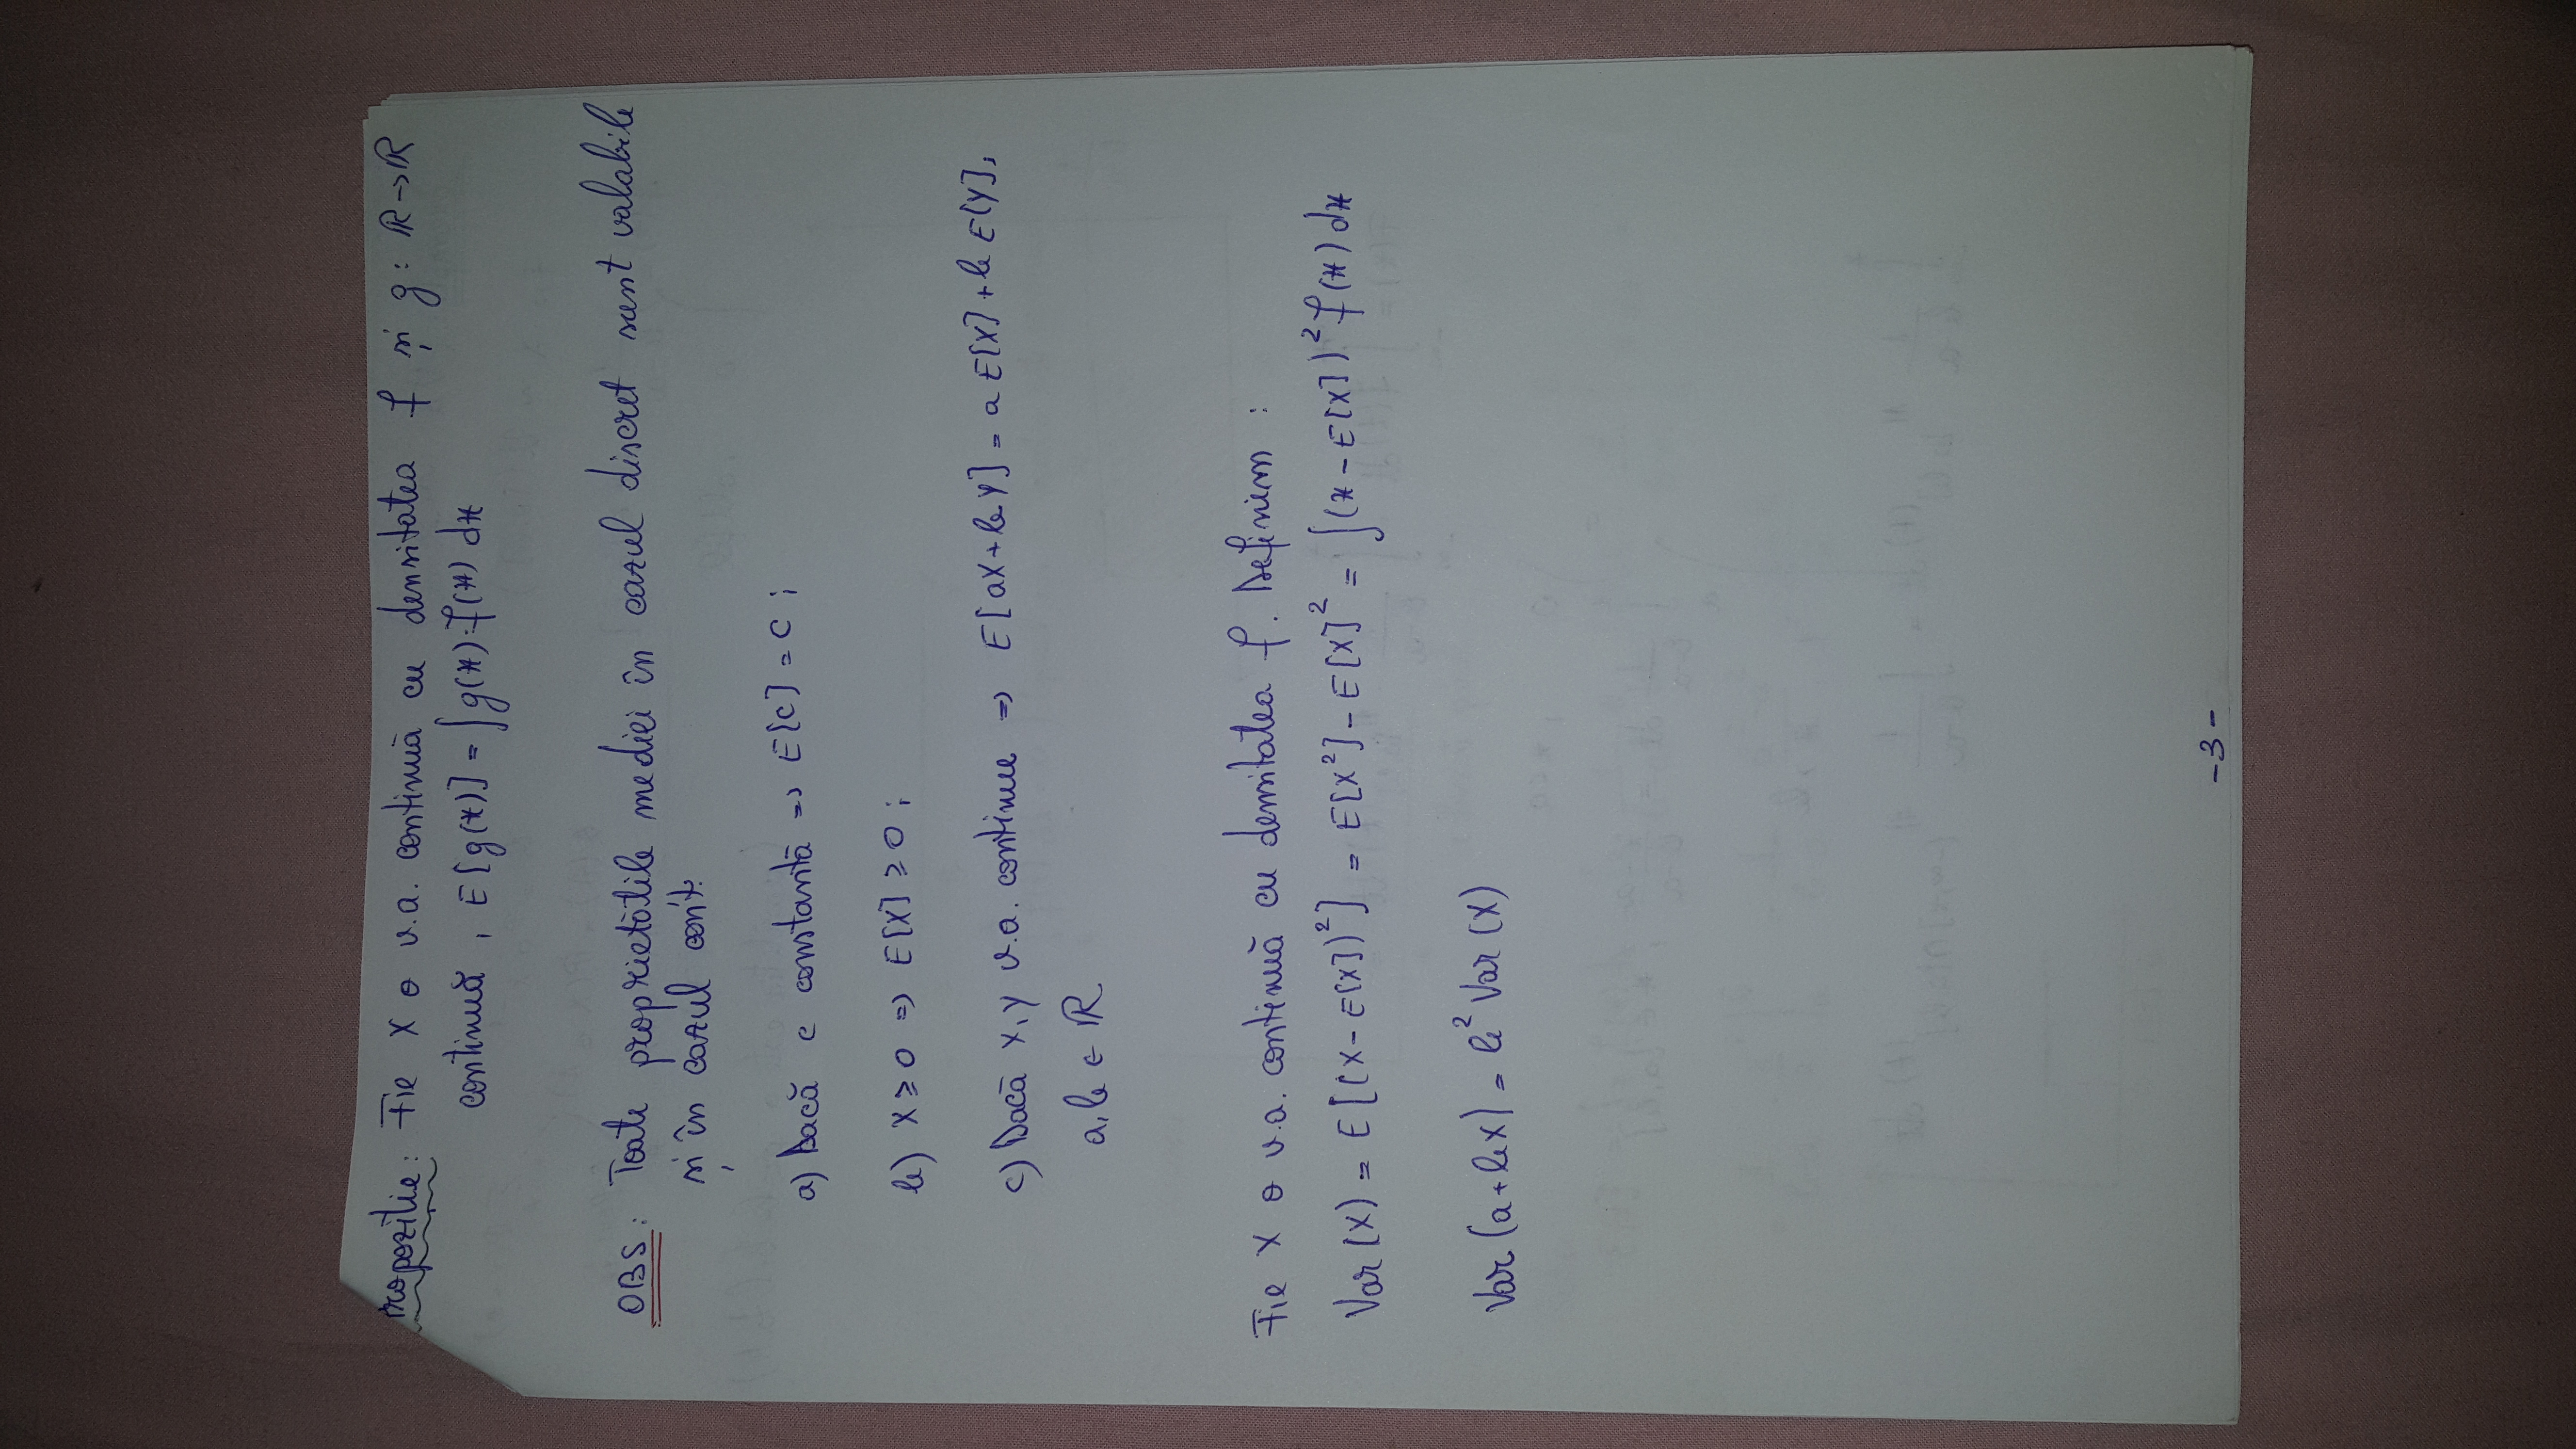 Propoziție: Fie X o v.a. continuă cu densitatea f și g: ℝ→ℝ
continuă, E[g(x)] = ∫g(x)·f(x) dx
OBS: Toate proprietățile mediei în cazul discret sunt valabile
și în cazul cont.
a) Dacă c constantă => E[c] = c ;
b) X ≥ 0 => E[X] ≥ 0 ;
c) Dacă X, Y v.a. continue => E[aX+bY] = a E[X] + b E[Y],
a, b ∈ ℝ
Fie X o v.a. continuă cu densitatea f. Definim :
Var(X) = E[(X-E[X])²] = E[X²] - E[X]² = ∫(x - E[X])² f(x) dx
Var(a+bX) = b² Var(X)
-3-